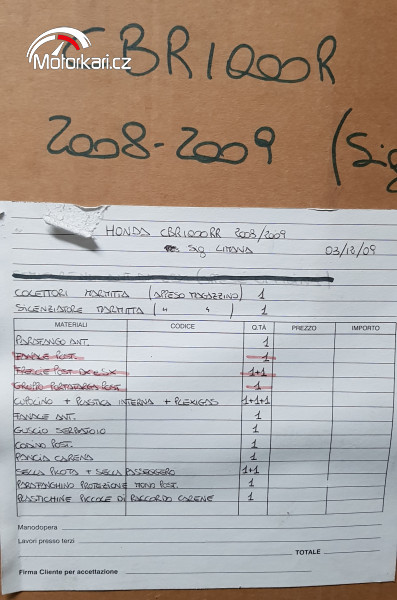 Motorkáři.cz
CBR1000R
2008-2009 (Sig
HONDA CBR1000RR 2008/2009
Sig. 03/12/09
COLETTORI MARMITTA (APPESO MAGAZZINO) 1
SILENZIATORE MARMITTA (" ") 1
MATERIALI CODICE Q.TÀ PREZZO IMPORTO
PARAFANGO ANT. 1
FANALE POST. 1
FRECCE POST DX e SX 1+1
GRUPPO PORTATARGA POST 1
CUPOLINO + PLASTICA INTERNA + PLEXIGAS 1+1+1
FANALE ANT. 1
GUSCIO SERBATOIO 1
CODINO POST. 1
PANCIA CARENA 1
SELLA PILOTA + SELLA PASSEGGERO 1+1
PARAFANGHINO PROTEZIONE MONO POST. 1
PLASTICHINE PICCOLE DI RACCORDO CARENE 1
Manodopera
Lavori presso terzi
TOTALE
Firma Cliente per accettazione